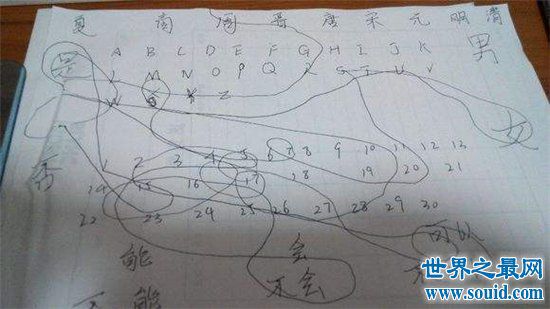 夏 商 周 晋 唐 宋 元 明 清
A B C D E F G H I J K 男
L M N O P Q R S T U V
是 W X Y Z
女
否
1 2 3 4 5 6 7 8 9 10 11 12 13
14 15 16 17 18 19 20 21
22 23 24 25 26 27 28 29 30
能 会 可以
不能 不会 不
世界之最网
www.souid.com